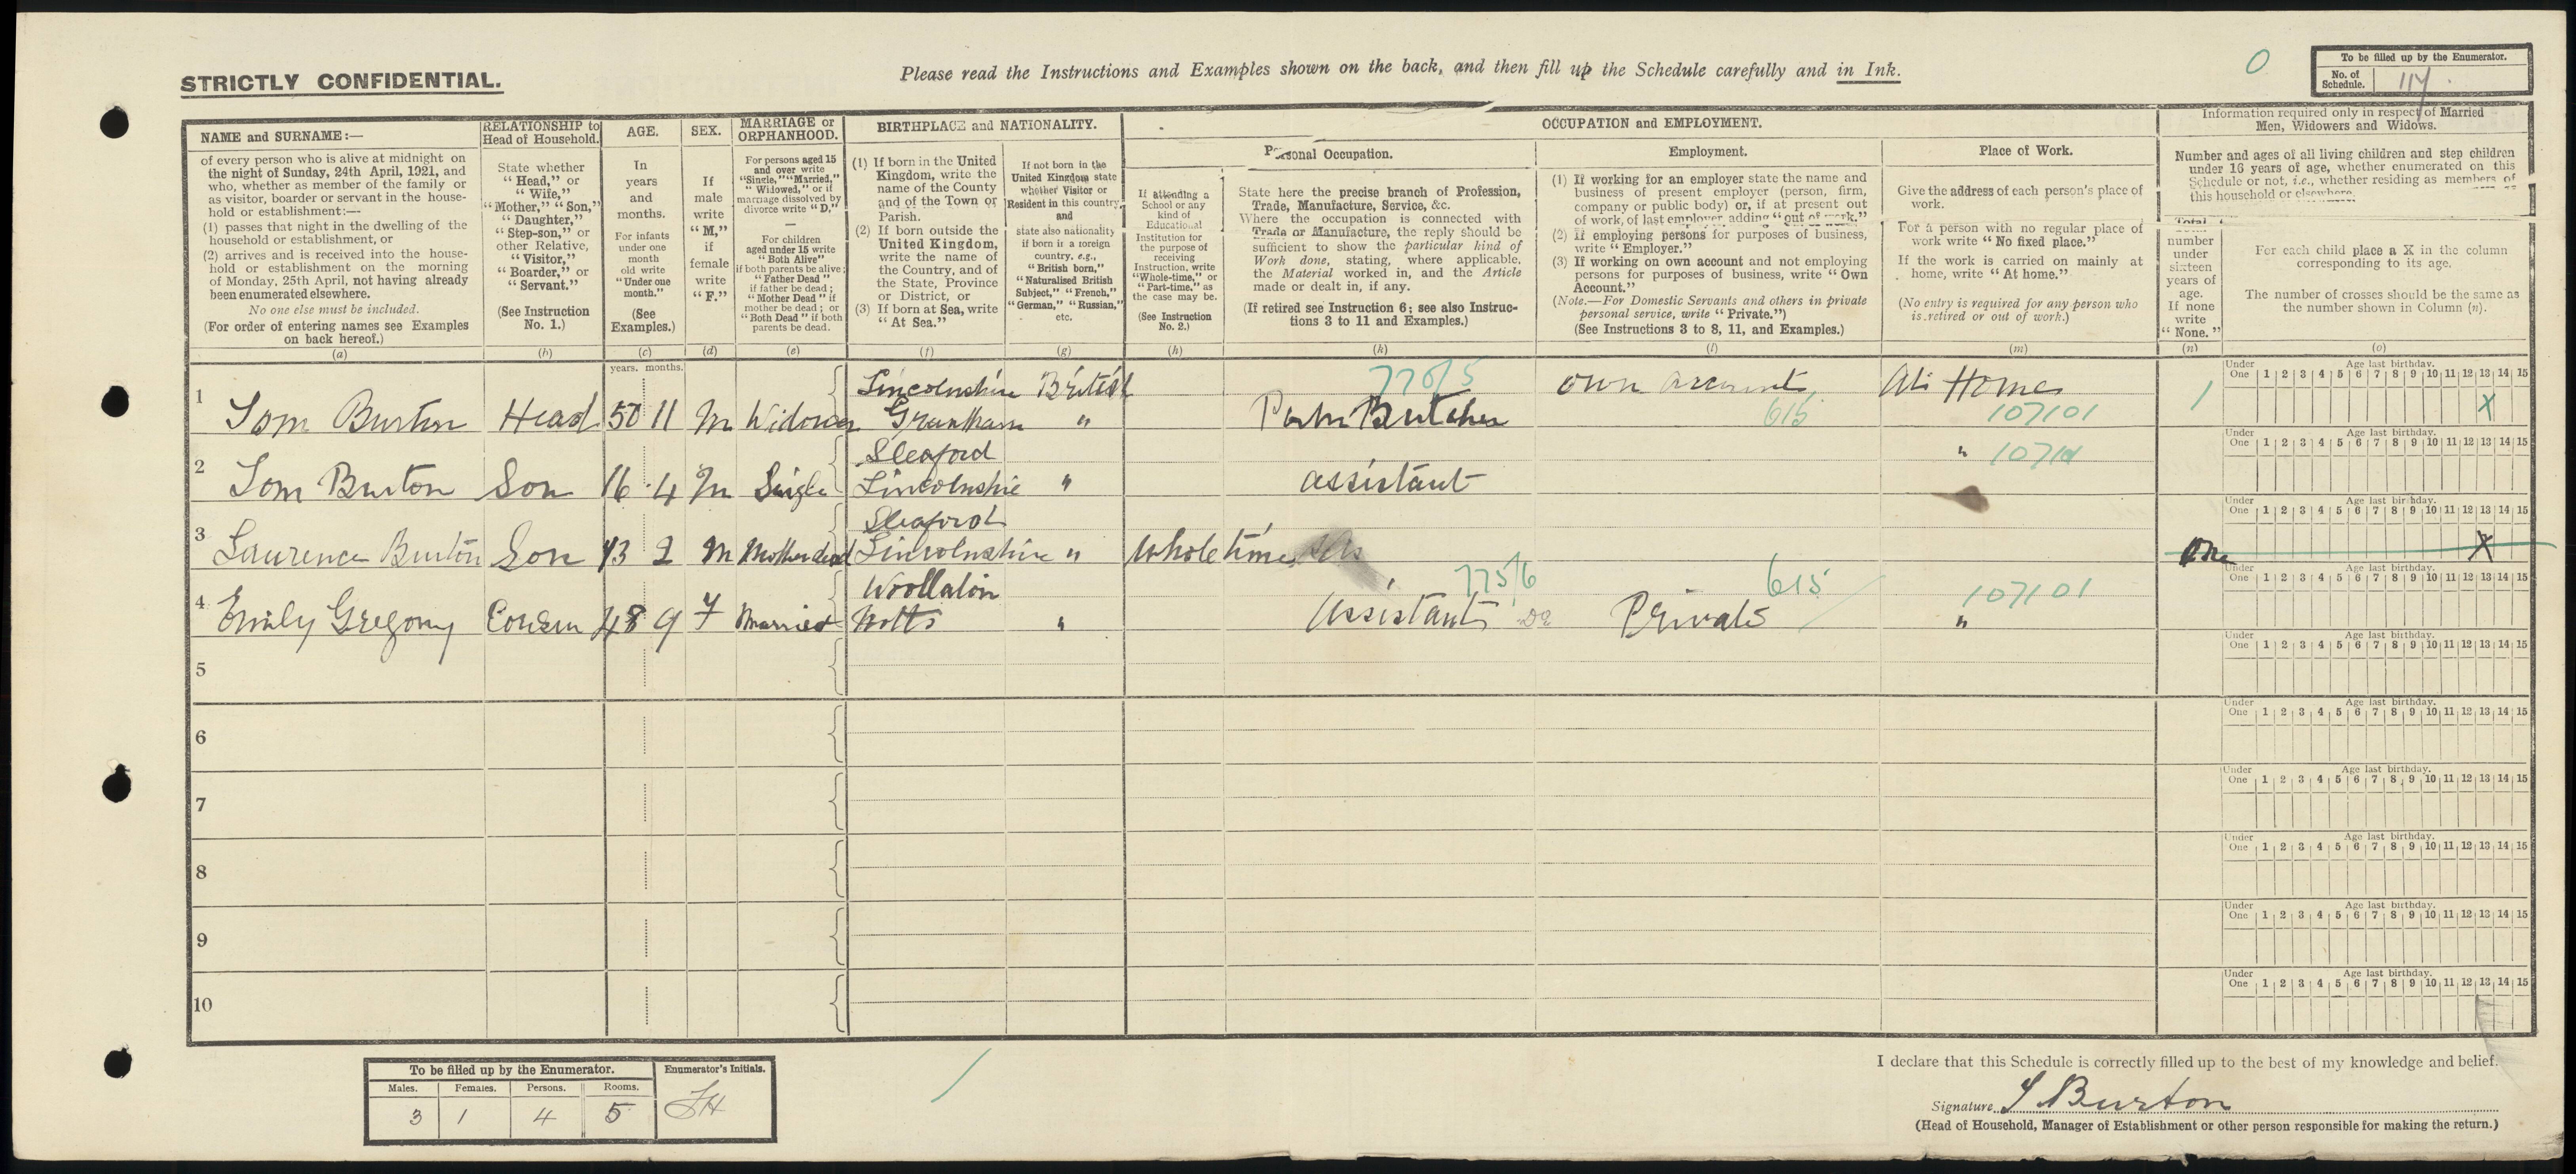 STRICTLY CONFIDENTIAL.
Please read the Instructions and Examples shown on the back, and then fill up the Schedule carefully and in Ink.
0
To be filled up by the Enumerator.
No. of Schedule. 114
NAME and SURNAME:—
of every person who is alive at midnight on
the night of Sunday, 24th April, 1921, and
who, whether as member of the family or
as visitor, boarder or servant in the house-
hold or establishment:—
(1) passes that night in the dwelling of the
household or establishment, or
(2) arrives and is received into the house-
hold or establishment on the morning
of Monday, 25th April, not having already
been enumerated elsewhere.
No one else must be included.
(For order of entering names see Examples
on back hereof.)
(a)
RELATIONSHIP to
Head of Household.
State whether
"Head," or
"Wife,"
"Mother," "Son,"
"Daughter,"
"Step-son," or
other Relative,
"Visitor,"
"Boarder," or
"Servant."
(See Instruction
No. 1.)
(b)
AGE.
In
years
and
months.
For infants
under one
month
old write
"Under one
month."
(See
Examples.)
(c)
SEX.
If
male
write
"M,"
if
female
write
"F."
(d)
MARRIAGE or
ORPHANHOOD.
For persons aged 15
and over write
"Single," "Married,"
"Widowed," or if
marriage dissolved by
divorce write "D."
—
For children
aged under 15 write
"Both Alive"
if both parents be alive;
"Father Dead"
if father be dead;
"Mother Dead" if
mother be dead; or
"Both Dead" if both
parents be dead.
(e)
BIRTHPLACE and NATIONALITY.
(1) If born in the United
Kingdom, write the
name of the County
and of the Town or
Parish.
(2) If born outside the
United Kingdom,
write the name of
the Country, and of
the State, Province
or District, or
(3) If born at Sea, write
"At Sea."
(f)
If not born in the
United Kingdom state
whether Visitor or
Resident in this country,
and
state also nationality
if born in a foreign
country, e.g.,
"British born,"
"Naturalised British
Subject," "French,"
"German," "Russian,"
etc.
(g)
OCCUPATION and EMPLOYMENT.
If attending a
School or any
kind of
Educational
Institution for
the purpose of
receiving
Instruction, write
"Whole-time," or
"Part-time," as
the case may be.
(See Instruction
No. 2.)
(h)
Personal Occupation.
State here the precise branch of Profession,
Trade, Manufacture, Service, &c.
Where the occupation is connected with
Trade or Manufacture, the reply should be
sufficient to show the particular kind of
Work done, stating, where applicable,
the Material worked in, and the Article
made or dealt in, if any.
(If retired see Instruction 6; see also Instruc-
tions 3 to 11 and Examples.)
(k)
Employment.
(1) If working for an employer state the name and
business of present employer (person, firm,
company or public body) or, if at present out
of work, of last employer, adding "out of work."
(2) If employing persons for purposes of business,
write "Employer."
(3) If working on own account and not employing
persons for purposes of business, write "Own
Account."
(Note.—For Domestic Servants and others in private
personal service, write "Private.")
(See Instructions 3 to 8, 11, and Examples.)
(l)
Place of Work.
Give the address of each person's place of
work.
For a person with no regular place of
work write "No fixed place."
If the work is carried on mainly at
home, write "At home."
(No entry is required for any person who
is retired or out of work.)
(m)
Information required only in respect of Married
Men, Widowers and Widows.
Number and ages of all living children and step children
under 16 years of age, whether enumerated on this
Schedule or not, i.e., whether residing as members of
this household or elsewhere.
Total
number
under
sixteen
years of
age.
If none
write
"None."
(n)
For each child place a X in the column
corresponding to its age.
The number of crosses should be the same as
the number shown in Column (n).
(o)
years. months.
1 Tom Burton Head 50 11 M Widower Lincolnshire Grantham British " 770/5 Pork Butcher own account 615 At Home 107101 1 X
2 Tom Burton Son 16 4 M Single Sleaford Lincolnshire " assistant "
3 Laurence Burton Son 13 2 M Mother dead Sleaford Lincolnshire " Whole time One X
4 Emily Gregory Cousin 48 9 F Married Woollaton Notts " 775/6 Assistant Private 615 107101 "
5
6
7
8
9
10
Under One 1 2 3 4 5 6 7 8 9 10 11 12 13 14 15
Age last birthday.
To be filled up by the Enumerator.
Males. Females. Persons. Rooms.
3 1 4 5
Enumerator's Initials.
I declare that this Schedule is correctly filled up to the best of my knowledge and belief.
Signature T Burton
(Head of Household, Manager of Establishment or other person responsible for making the return.)